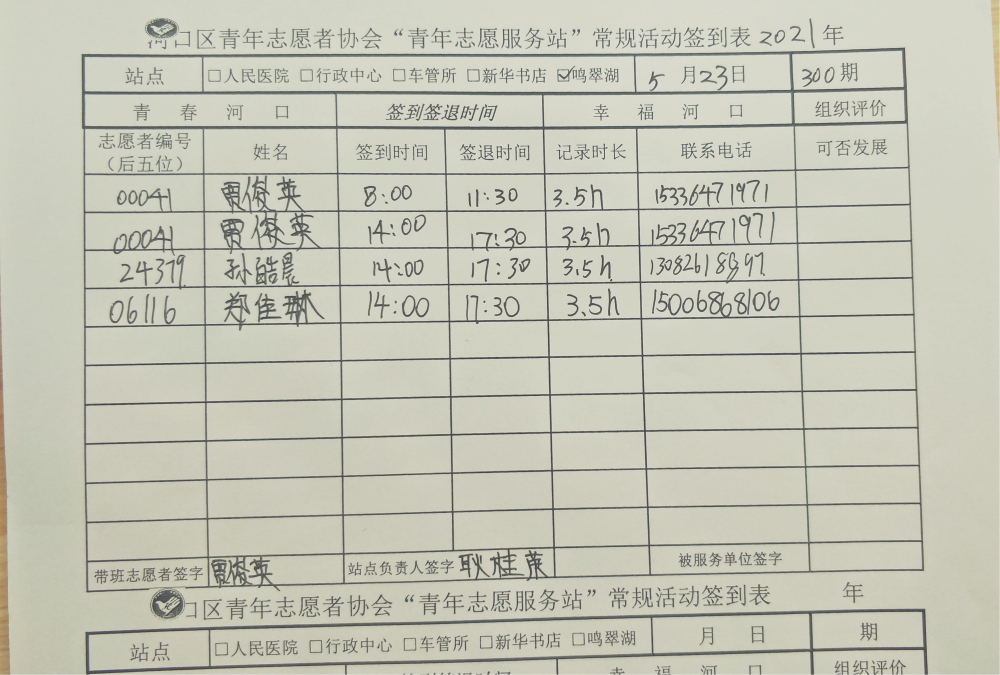 河口区青年志愿者协会“青年志愿服务站”常规活动签到表 2021年
站点 □人民医院 □行政中心 □车管所 □新华书店 ☑鸣翠湖 5月23日 300期
青春河口 签到签退时间 幸福河口 组织评价
志愿者编号（后五位） 姓名 签到时间 签退时间 记录时长 联系电话 可否发展
00041 贾俊英 8:00 11:30 3.5h 15336471971
00041 贾俊英 14:00 17:30 3.5h 15336471971
24379 孙皓晨 14:00 17:30 3.5h
06116 郑佳琳 14:00 17:30 3.5h 15006868106
带班志愿者签字 贾俊英 站点负责人签字 耿桂荣 被服务单位签字
口区青年志愿者协会“青年志愿服务站”常规活动签到表 年
站点 □人民医院 □行政中心 □车管所 □新华书店 □鸣翠湖 月 日 期
签到签退时间 幸福河口 组织评价